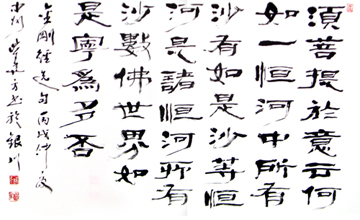 須菩提於意云何
如一恒河中所有
沙有如是沙等恒
河是諸恒河所有
沙數佛世界如
是寧爲多否
金剛經選句丙戌仲夏
於銀川